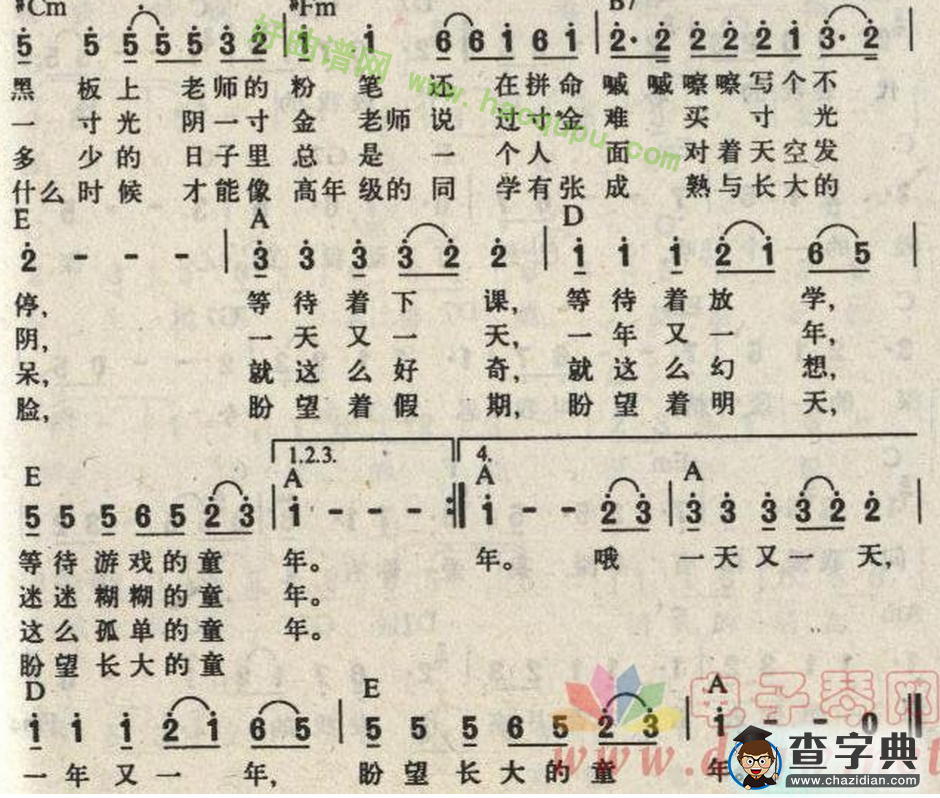 #Cm #Fm B7
5 5 5 5 5 3 2 1 1 6 6 1 6 1 | 2· 2 2 2 2 1 3· 2 |
黑 板上 老师的 粉 笔 还 在拼命 喊 喊嚓嚓写个不
一 寸光 阴一寸 金 老师 说 过寸金 难 买 寸 光
多 少的 日子里 总 是 一 个人 面 对着天空发
什么时候 才能像 高年级的同 学有张 成 熟与长大的
E A D
2 - - - | 3 3 3 3 2 2 | 1 1 1 2 1 6 5 |
停, 等待着下 课, 等待着放 学,
阴, 一天又一 天, 一年又一 年,
呆, 就这么好 奇, 就这么幻 想,
脸, 盼望着假 期, 盼望着明 天,
1.2.3. 4.
E A A A
5 5 5 6 5 2 3 | 1 - - - :‖ 1 - - 2 3 | 3 3 3 3 2 2 |
等待游戏的童 年。 年。 哦 一天又一 天,
迷迷糊糊的童 年。
这么孤单的童 年。
盼望长大的童
D E A
1 1 1 2 1 6 5 | 5 5 5 6 5 2 3 | 1 - - 0 ‖
一年又一 年, 盼望长大的童 年。
好的谱网
www.haoqupu.com
电子琴网
查字典
www.chazidian.com